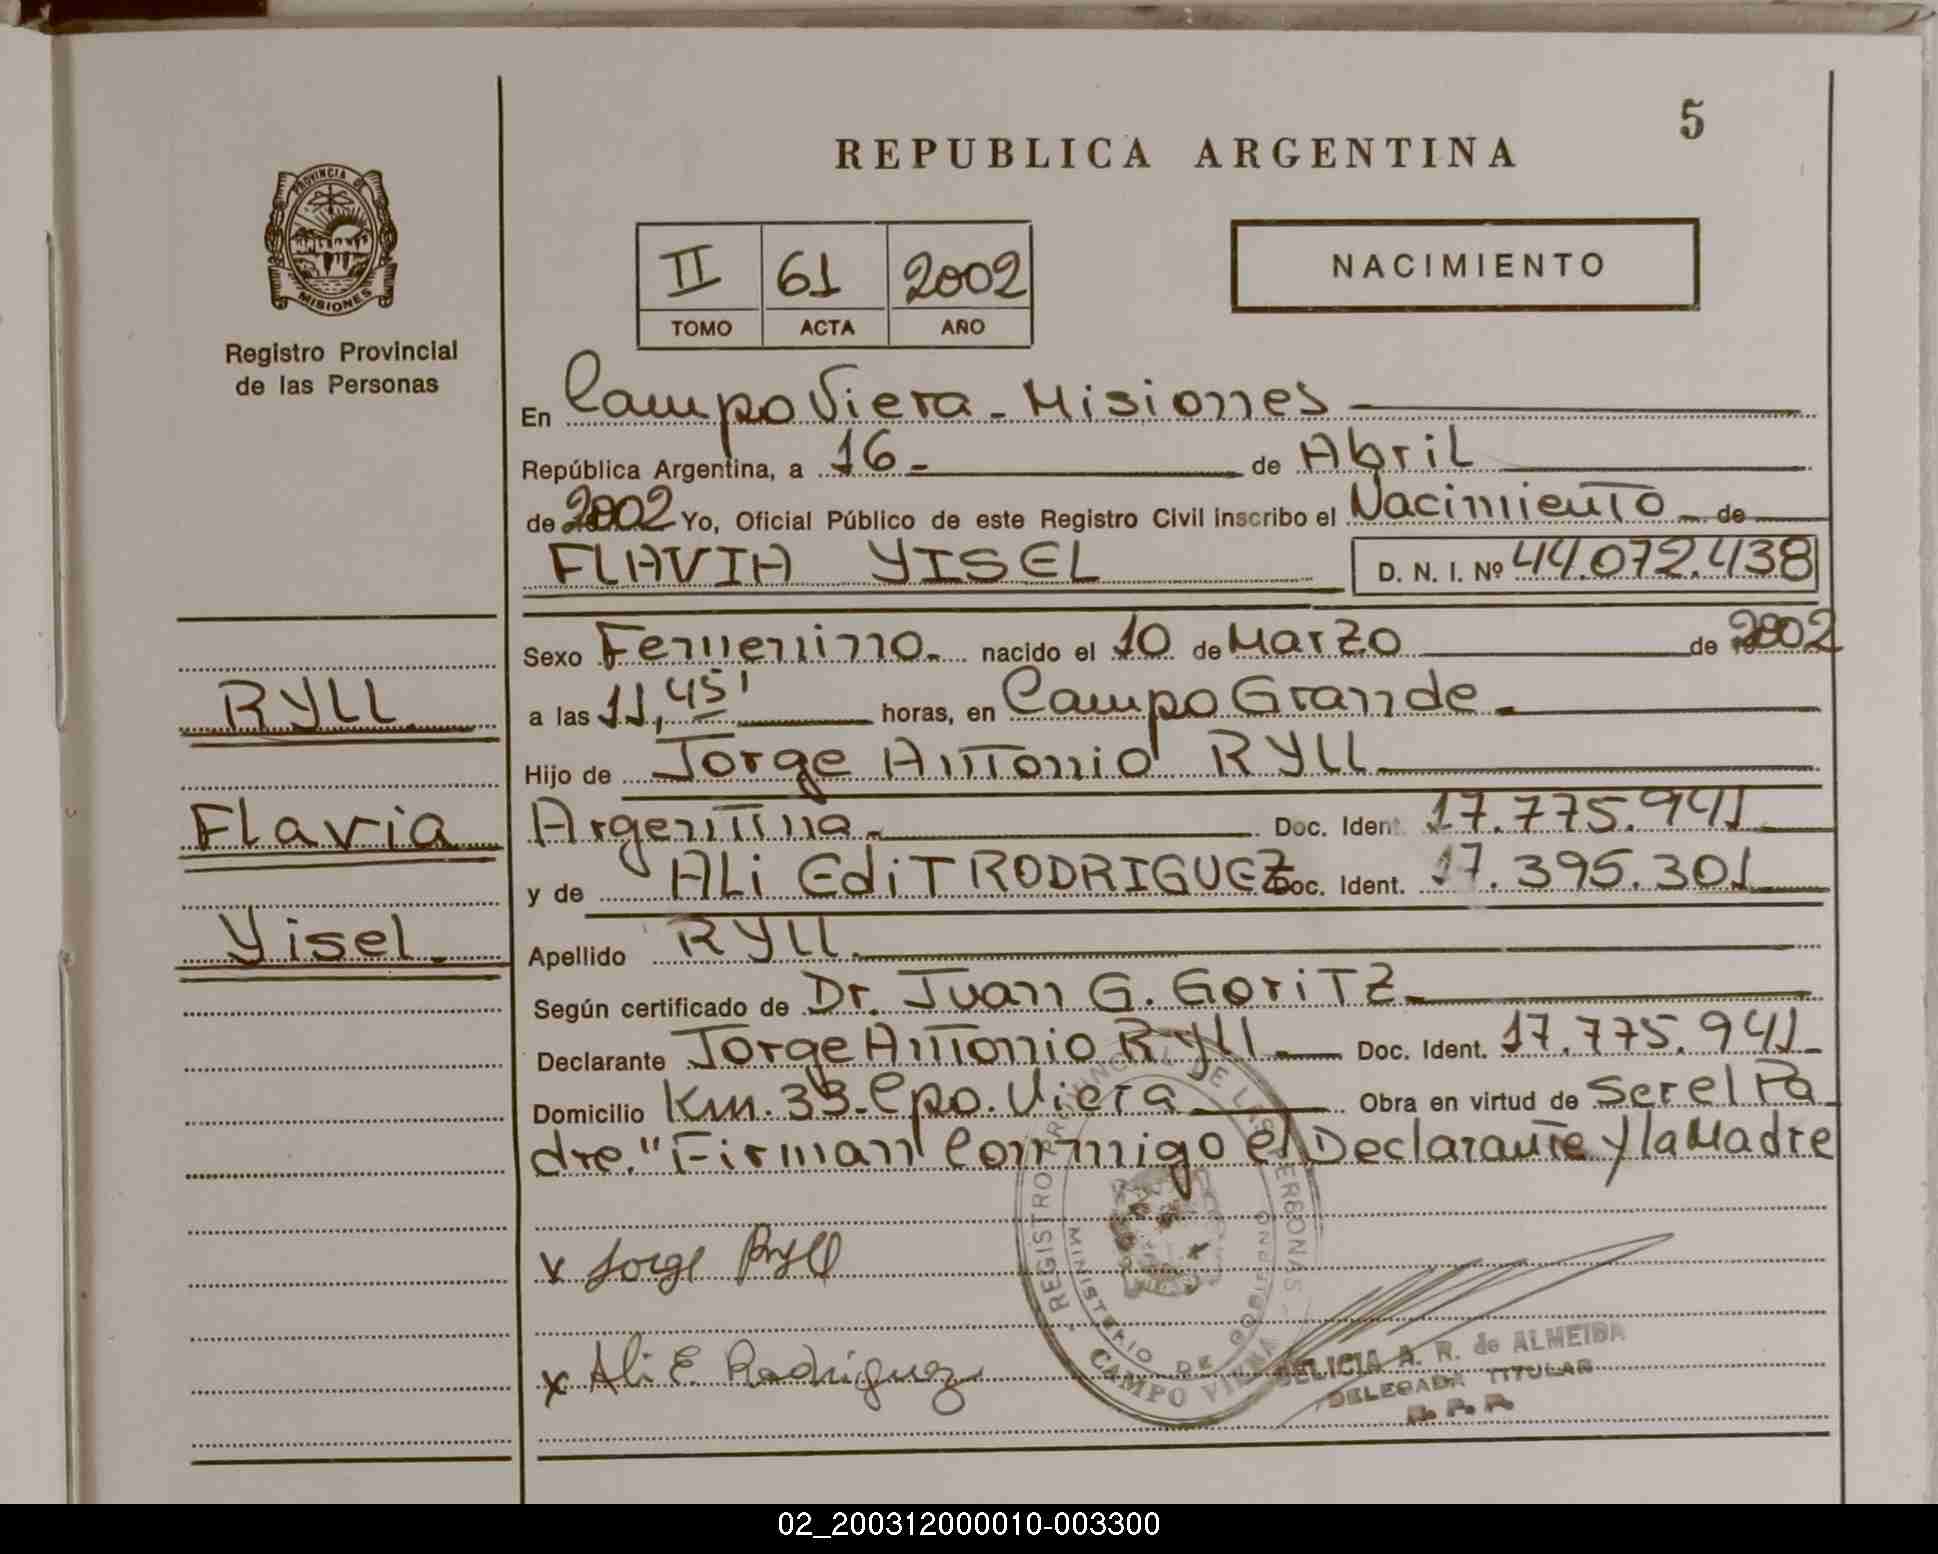 5
REPUBLICA ARGENTINA
PROVINCIA DE
MISIONES
Registro Provincial
de las Personas
II 61 2002
TOMO ACTA AÑO
NACIMIENTO
En Campo Viera - Misiones
República Argentina, a 16 - de Abril
de 2002 Yo, Oficial Público de este Registro Civil inscribo el Nacimiento de
FLAVIA YISEL D. N. I. Nº 44.072.438
Sexo Femenino. nacido el 10 de Marzo de 2002
a las 11,45' horas, en Campo Grande.
Hijo de Jorge Antonio RYLL
Argentina. Doc. Ident. 17.775.941
y de ALi EdiT RODRIGUEZ Doc. Ident. 17.395.301
Apellido RYLL
Según certificado de Dr. Juan G. GoriTZ
Declarante Jorge Antonio Ryll Doc. Ident. 17.775.941
Domicilio Km. 33. Cpo. Viera Obra en virtud de ser el Pa
dre." Firman Conmigo el Declarante y la Madre
RYLL
Flavia
Yisel.
x Jorge Ryll
x Ali E Rodriguez
REGISTRO PROVINCIAL DE LAS PERSONAS
MINISTERIO DE GOBIERNO
CAMPO VIERA
DELICIA A. R. de ALMEIDA
DELEGADA TITULAR
R. P. P.
02_200312000010-003300